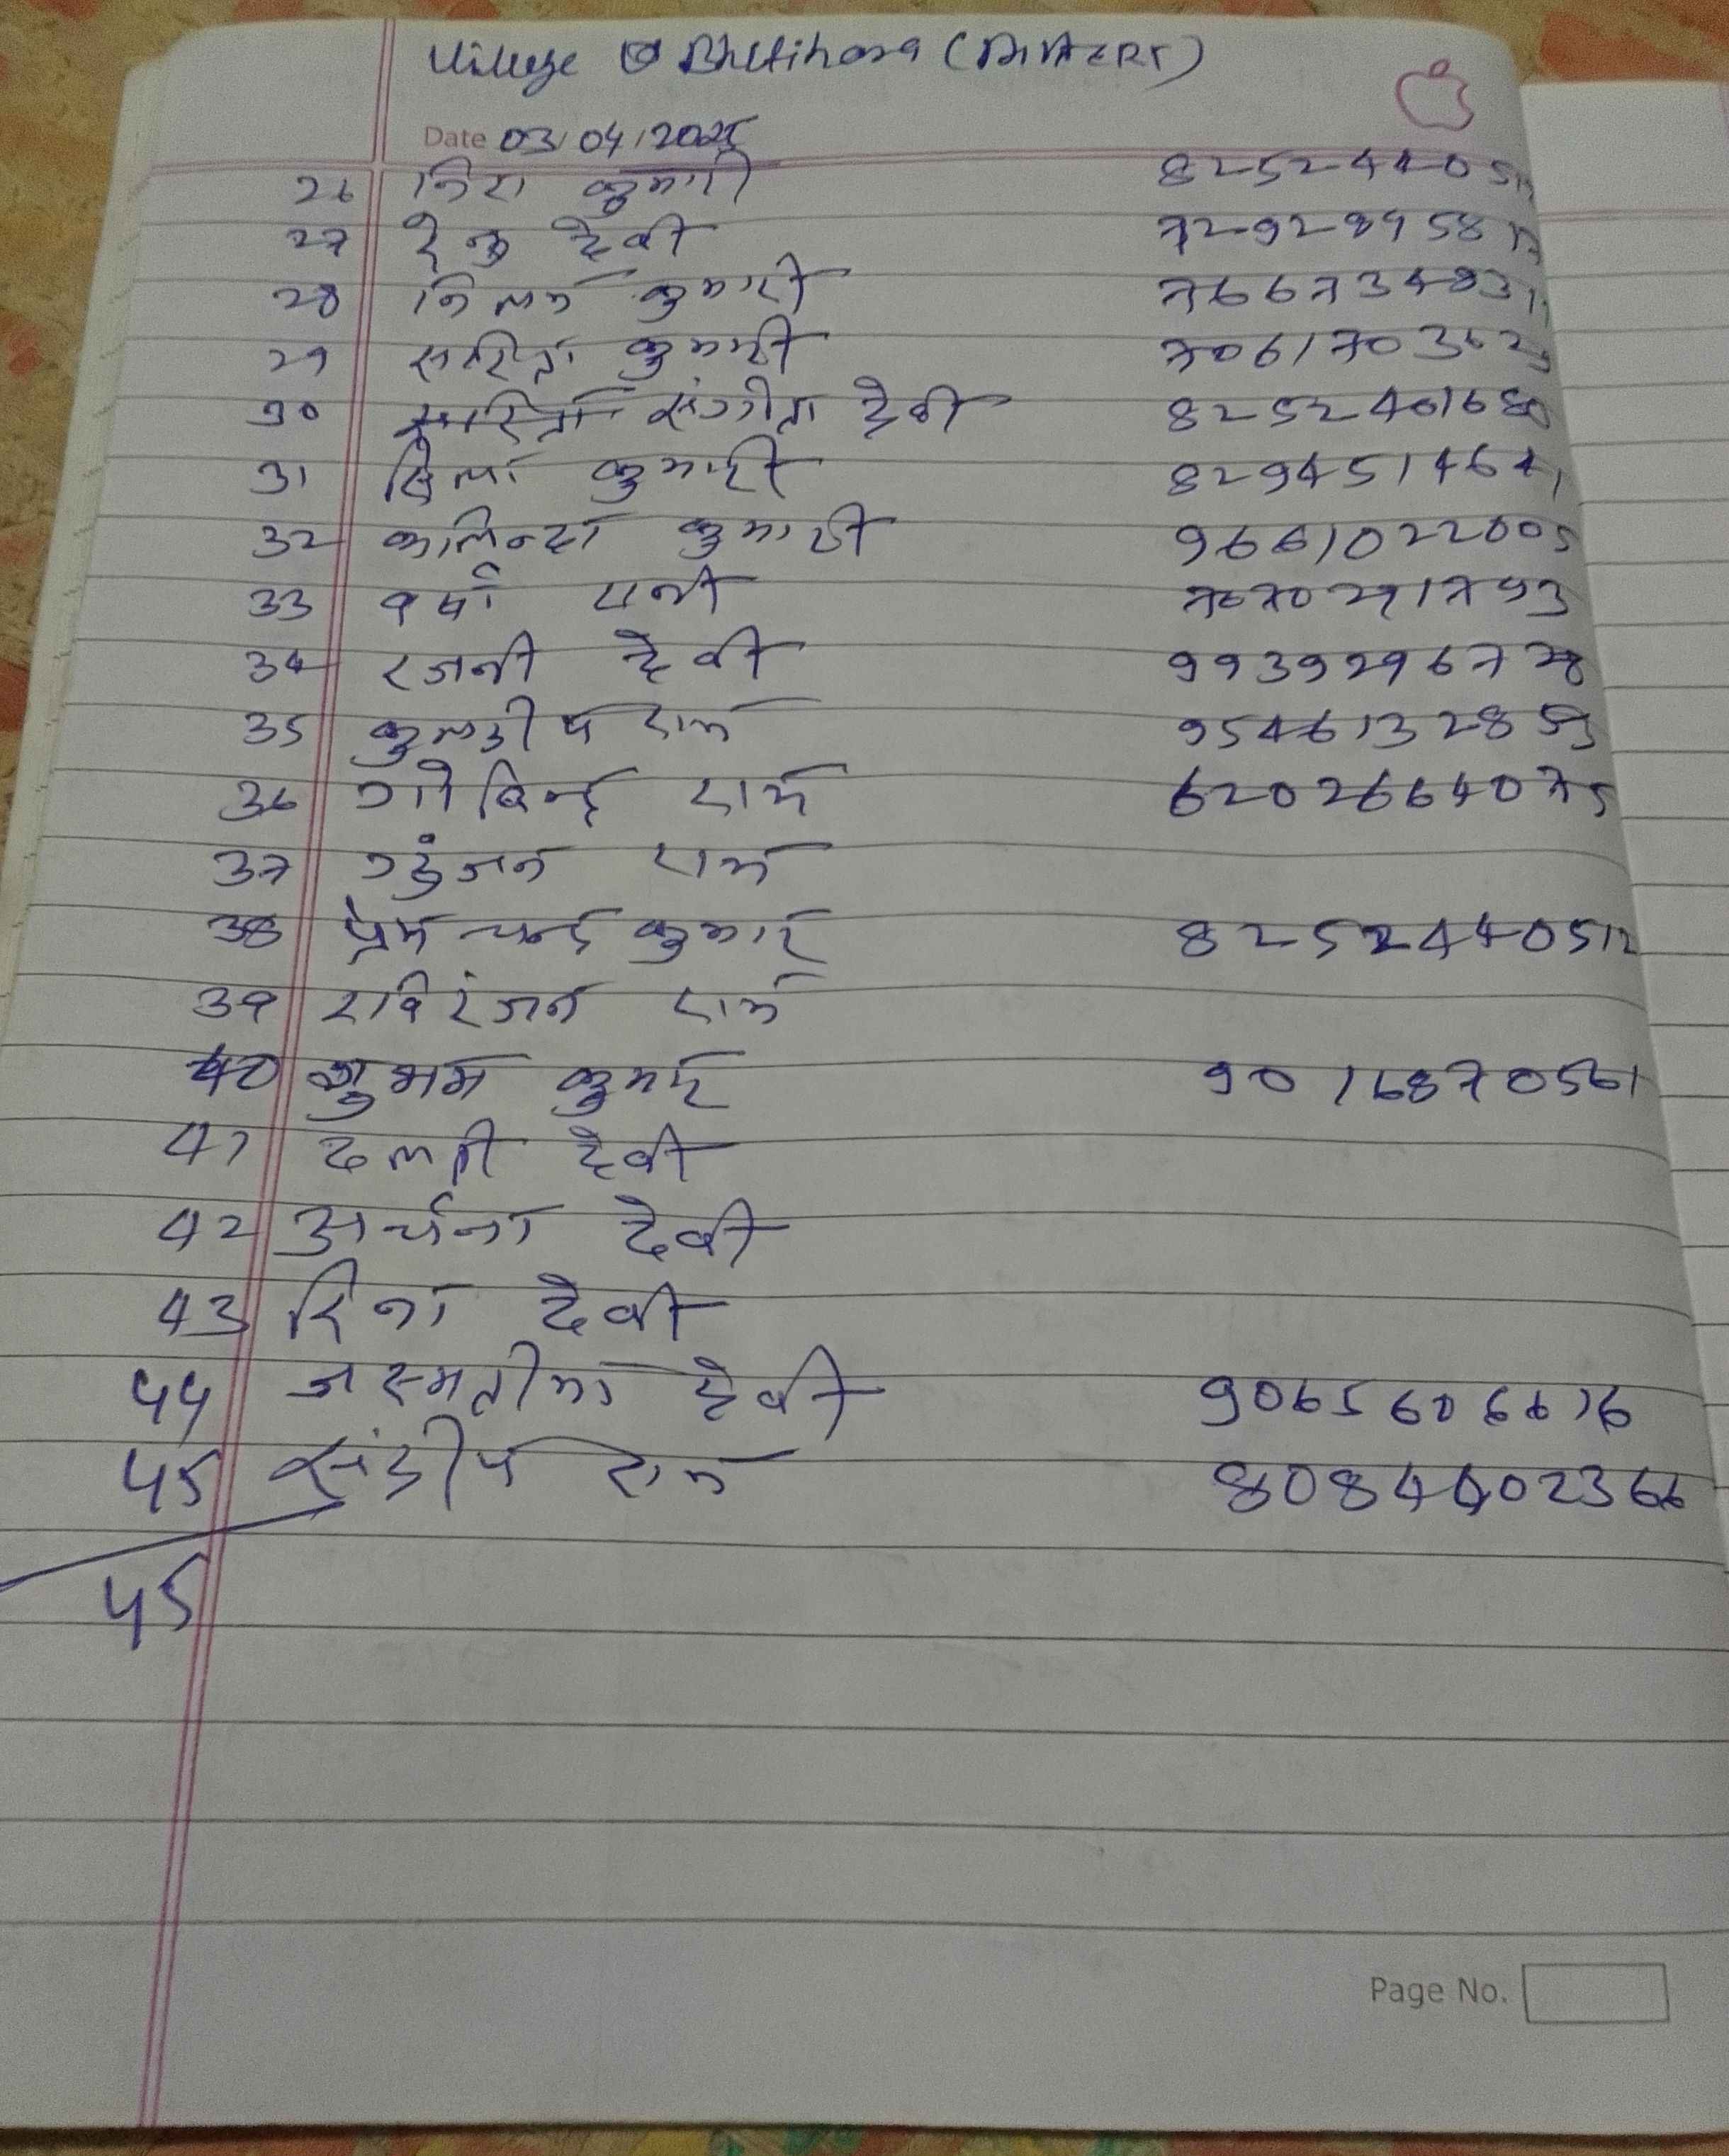 Village Bhitihara
Date 03/04/2025
26 निरा कुमारी 82524405
27 रेनु देवी 72928958
28 निलम कुमारी 766734831
29 सरिता कुमारी 7061703625
30 संगीता देवी 8252401680
31 बिमा कुमारी 8294514641
32 कालिन्दा कुमारी 9661022005
33 वर्षा रानी 7670291793
34 रजनी देवी 9939296728
35 कुलदीप राम 9546132859
36 गोबिन्द राम 6202664075
37 गुंजन राम
38 प्रेम चन्द कुमार 8252440512
39 रविरंजन राम
40 शुभम कुमार 9016870561
41 ललती देवी
42 अर्चना देवी
43 रिना देवी
44 देवी 9065606616
45 संदीप राम 8084402366
45
Page No.